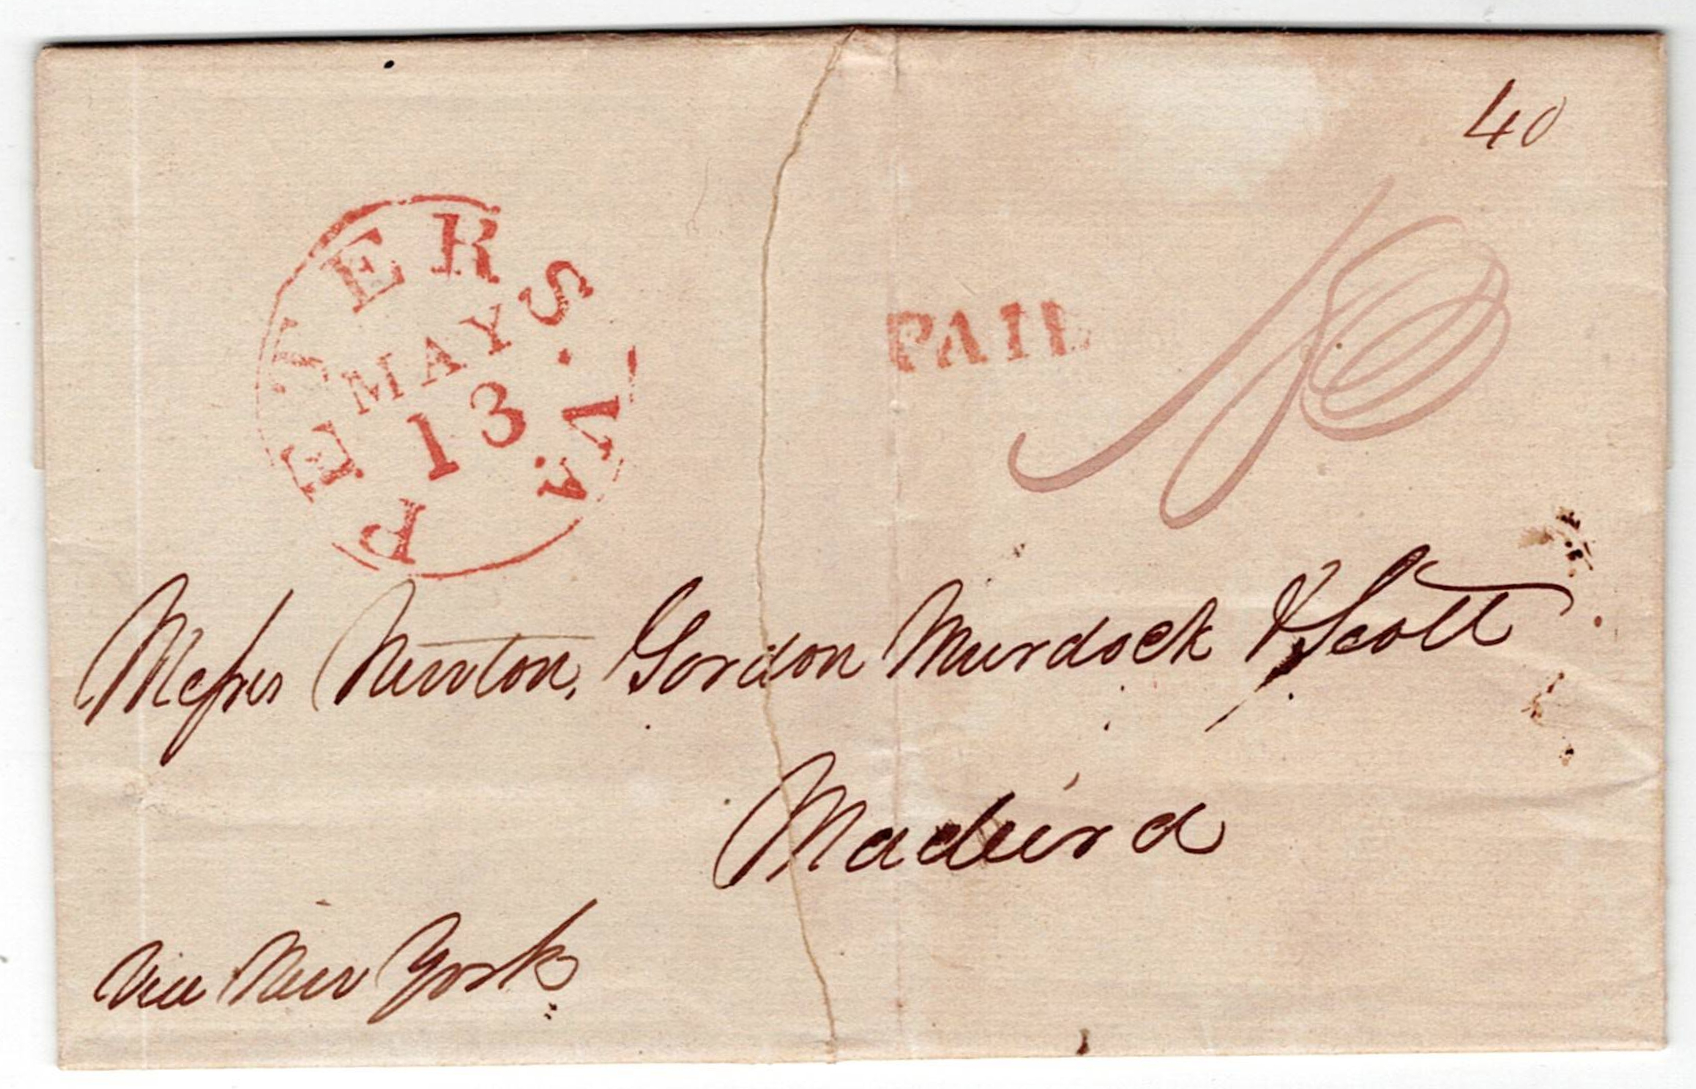 40
PEVERS. Va.
MAY
13
PAID
Messrs Newton, Gordon Murdock & Scott
Madeira
via New York